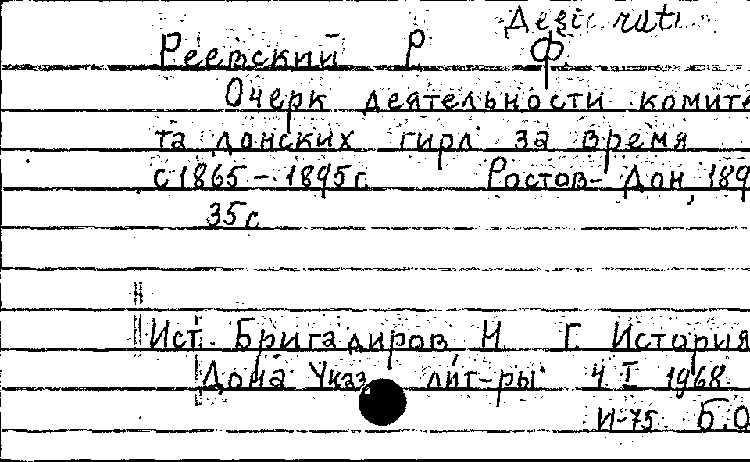 Деziderati
Реевский Р Ф.
Очерк деятельности комите
та донских гирл за время
с 1865 - 1895 г. Ростов- Дон, 189
35 с
Ист. Бригадиров, Н Г. История
Дона Указ. лит-ры Ч I 1968
И-75 Б.О